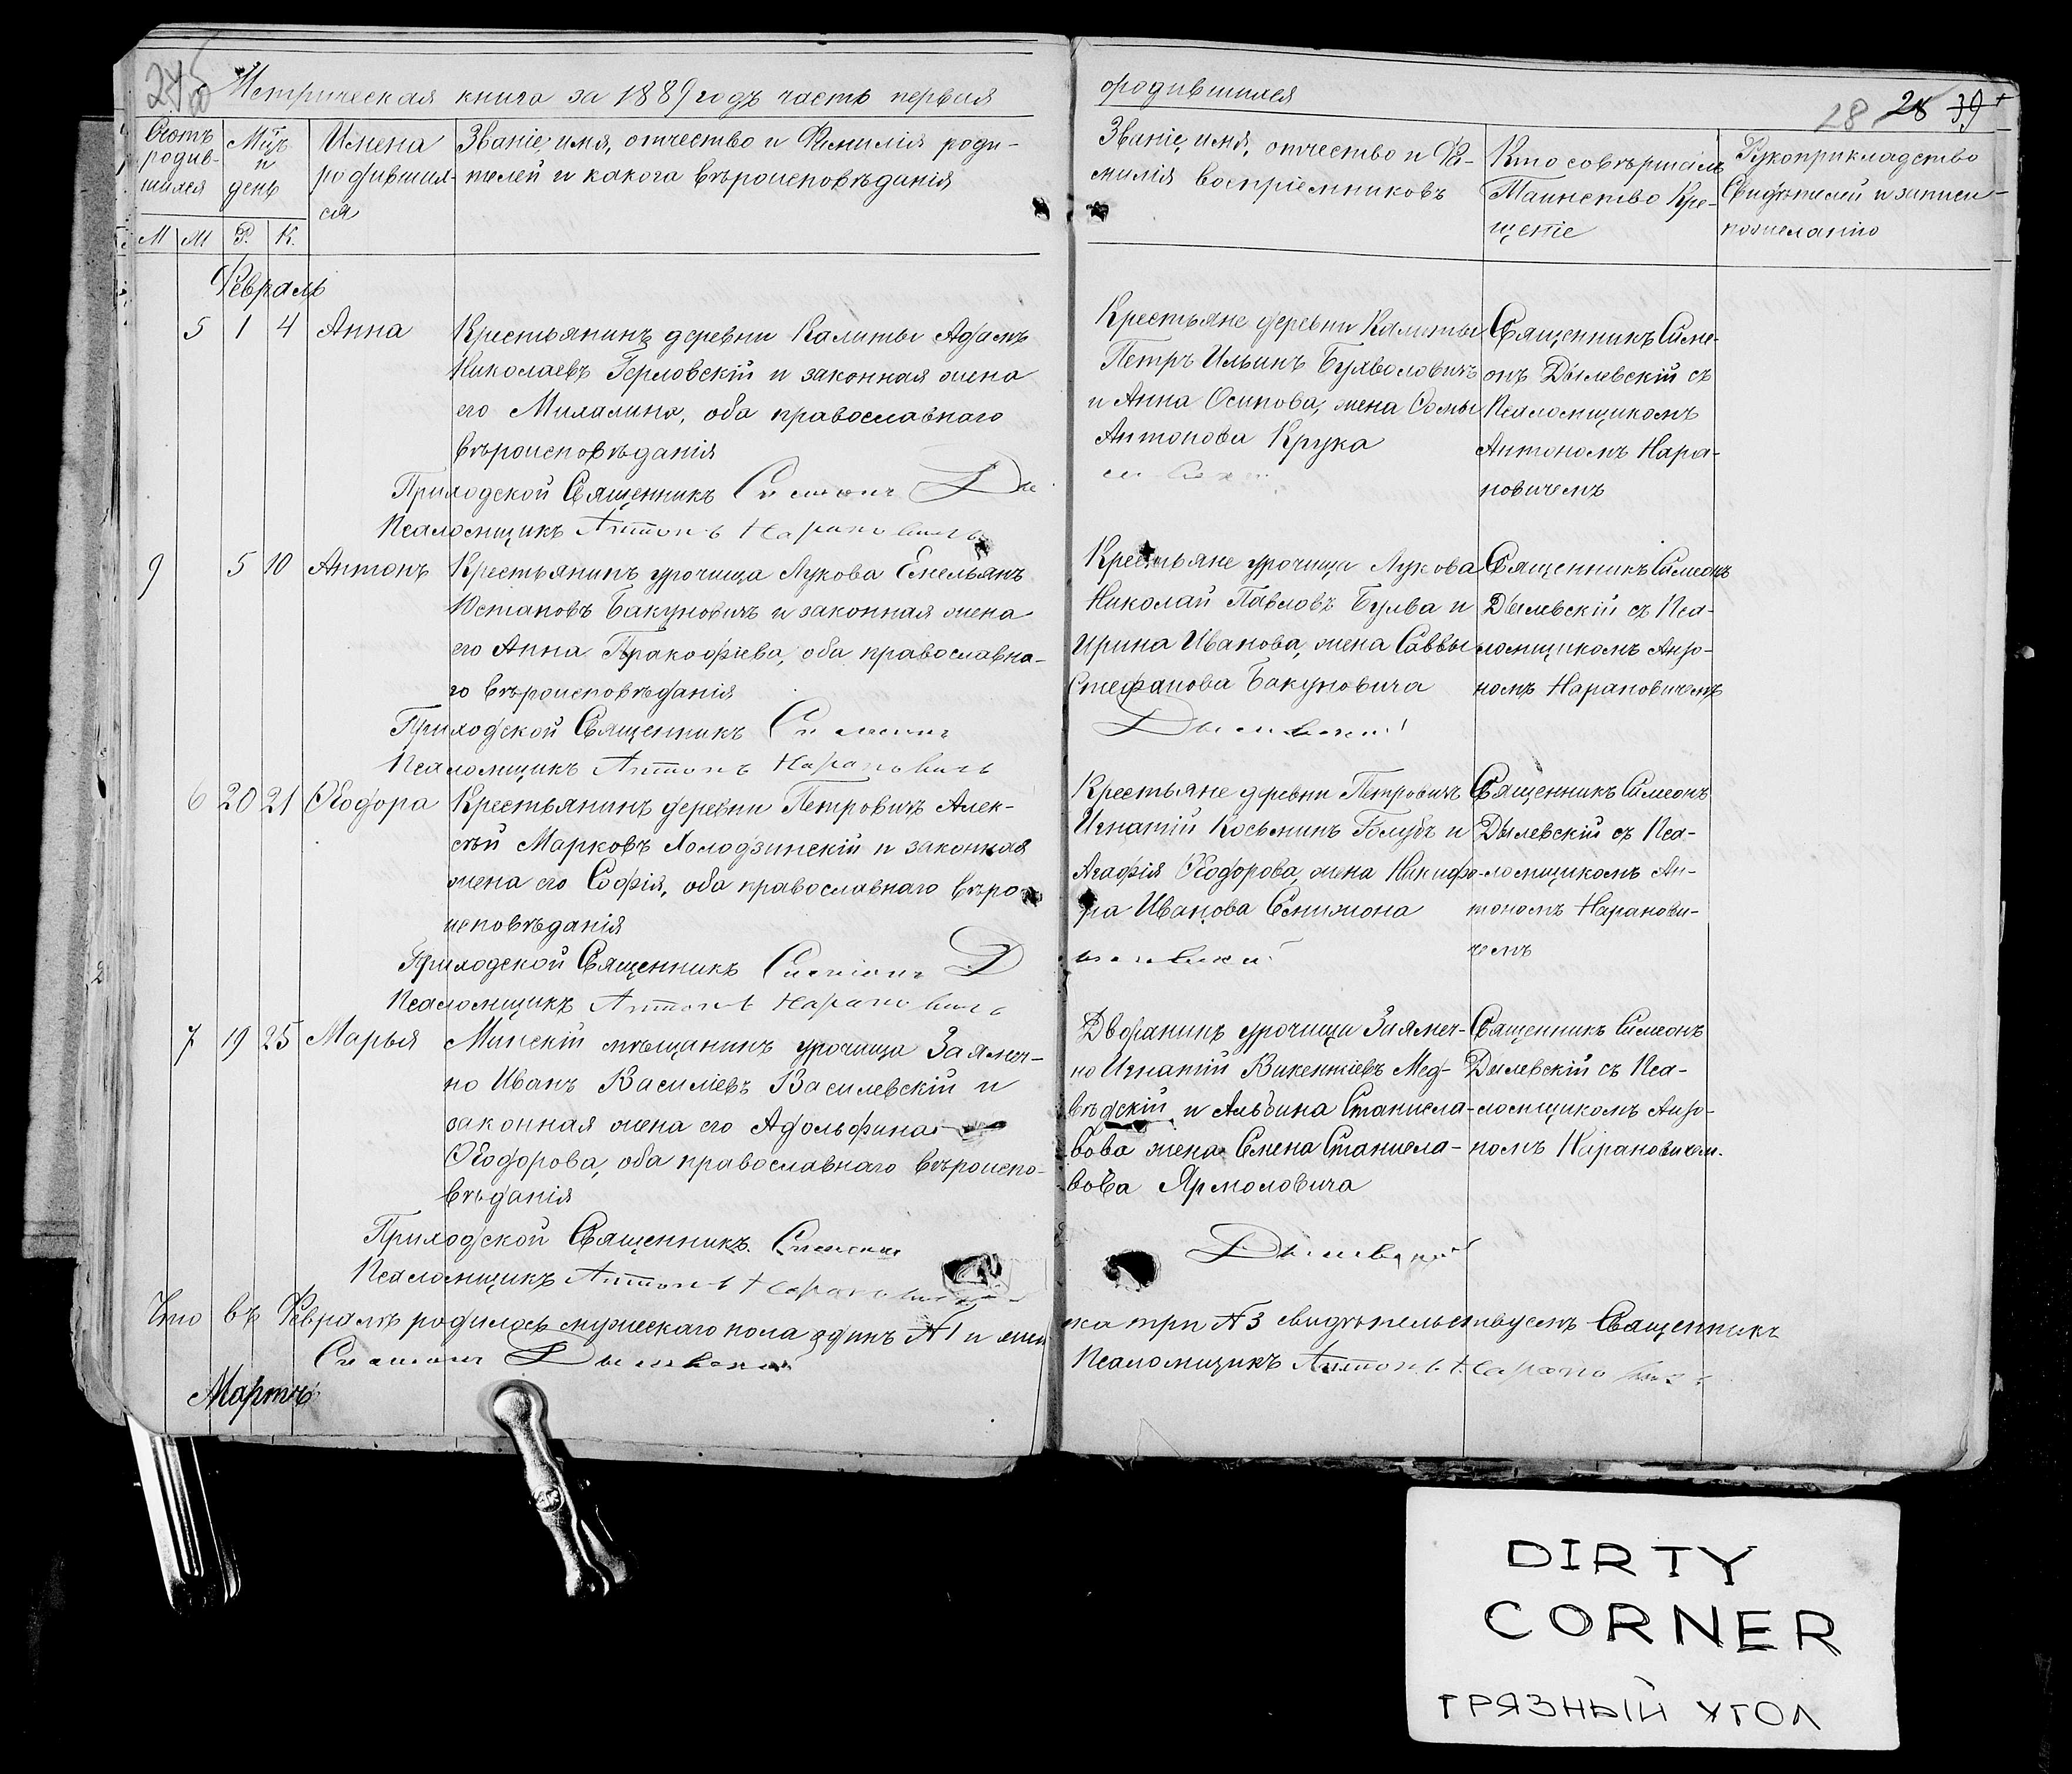 Метрическая книга за 1889 годъ часть первая
о родившихся
28 39
Счотъ родив-шихся
Мцъ и день
Имена родивших-ся
Званіе, имя, отчество и Фамилія роди-
телей и какого вѣроисповѣданія
М М Р. К.
Званіе, имя, отчество и Фа-
милія воспріемниковъ
Кто совѣршалъ
Таинство Кре-
щеніе
Рукоприкладство
Свидѣтелей и записи
по желанію
Февраль
5 1 4 Анна
Крестьянинъ деревни Калиты Адамъ
Николаевъ Герловскій и законная жена
его Михалина, оба православнаго
вѣроисповѣданія
Приходской Священникъ Симеонъ
Псаломщикъ Антонъ Нарановичъ
Крестьяне деревни Калиты
Петръ Ильинъ Булволовичъ
и Анна Осипова, жена Фомы
Антонова Крука
Священникъ Симе-
онъ Дылевскій съ
Псаломщикомъ
Антономъ Нара-
новичемъ
9 5 10 Антонъ
Крестьянинъ урочища Лукова Емельянъ
Юстиновъ Бакуновичъ и законная жена
его Анна Пракофіева, оба православна-
го вѣроисповѣданія
Приходской Священникъ Симеонъ
Псаломщикъ Антонъ Нарановичъ
Крестьяне урочища Лукова
Николай Павловъ Булва и
Ирина Иванова, жена Саввы
Стефанова Бакуновича
Дылевскій
Священникъ Симеонъ
Дылевскій съ Пса-
ломщикомъ Анто-
номъ Нарановичемъ
6 20 21 Ѳеодора
Крестьянинъ деревни Петровичъ Алек-
сѣй Марковъ Холодзинскій и законная
жена его Софія, оба православнаго вѣро-
исповѣданія
Приходской Священникъ Симеонъ Д
Псаломщикъ Антонъ Нарановичъ
Крестьяне деревни Петровичъ
Игнатій Косьминъ Голубъ и
Агафія Ѳеодорова, жена Никифо-
ра Иванова Семижона
ылевскій
Священникъ Симеонъ
Дылевскій съ Пса-
ломщикомъ Ан-
тономъ Наранови-
чемъ
7 19 25 Марья
Минскій мѣщанинъ урочища Заямеч-
но Иванъ Василіевъ Василевскій и
законная жена его Адольфина
Ѳеодорова, оба православнаго вѣроиспо-
вѣданія
Приходской Священникъ Симеонъ
Псаломщикъ Антонъ Нарановичъ
Дворанинъ урочища Заямеч-
но Игнатій Викентіевъ Мед-
вѣдскій и Альбина Станисла-
вова жена Семена Станисла-
вова Ярмоловича
Дылевскій
Священникъ Симеонъ
Дылевскій съ Пса-
ломщикомъ Анто-
номъ Нарановичем.
Что въ Февралѣ родилось мужескаго пола одинъ №1 и жен
ска три №3 свидѣтельствуемъ Священникъ
Симеонъ Дылевскій
Псаломщикъ Антонъ Нарановичъ
Мартъ
DIRTY
CORNER
ГРЯЗНЫЙ УГОЛ